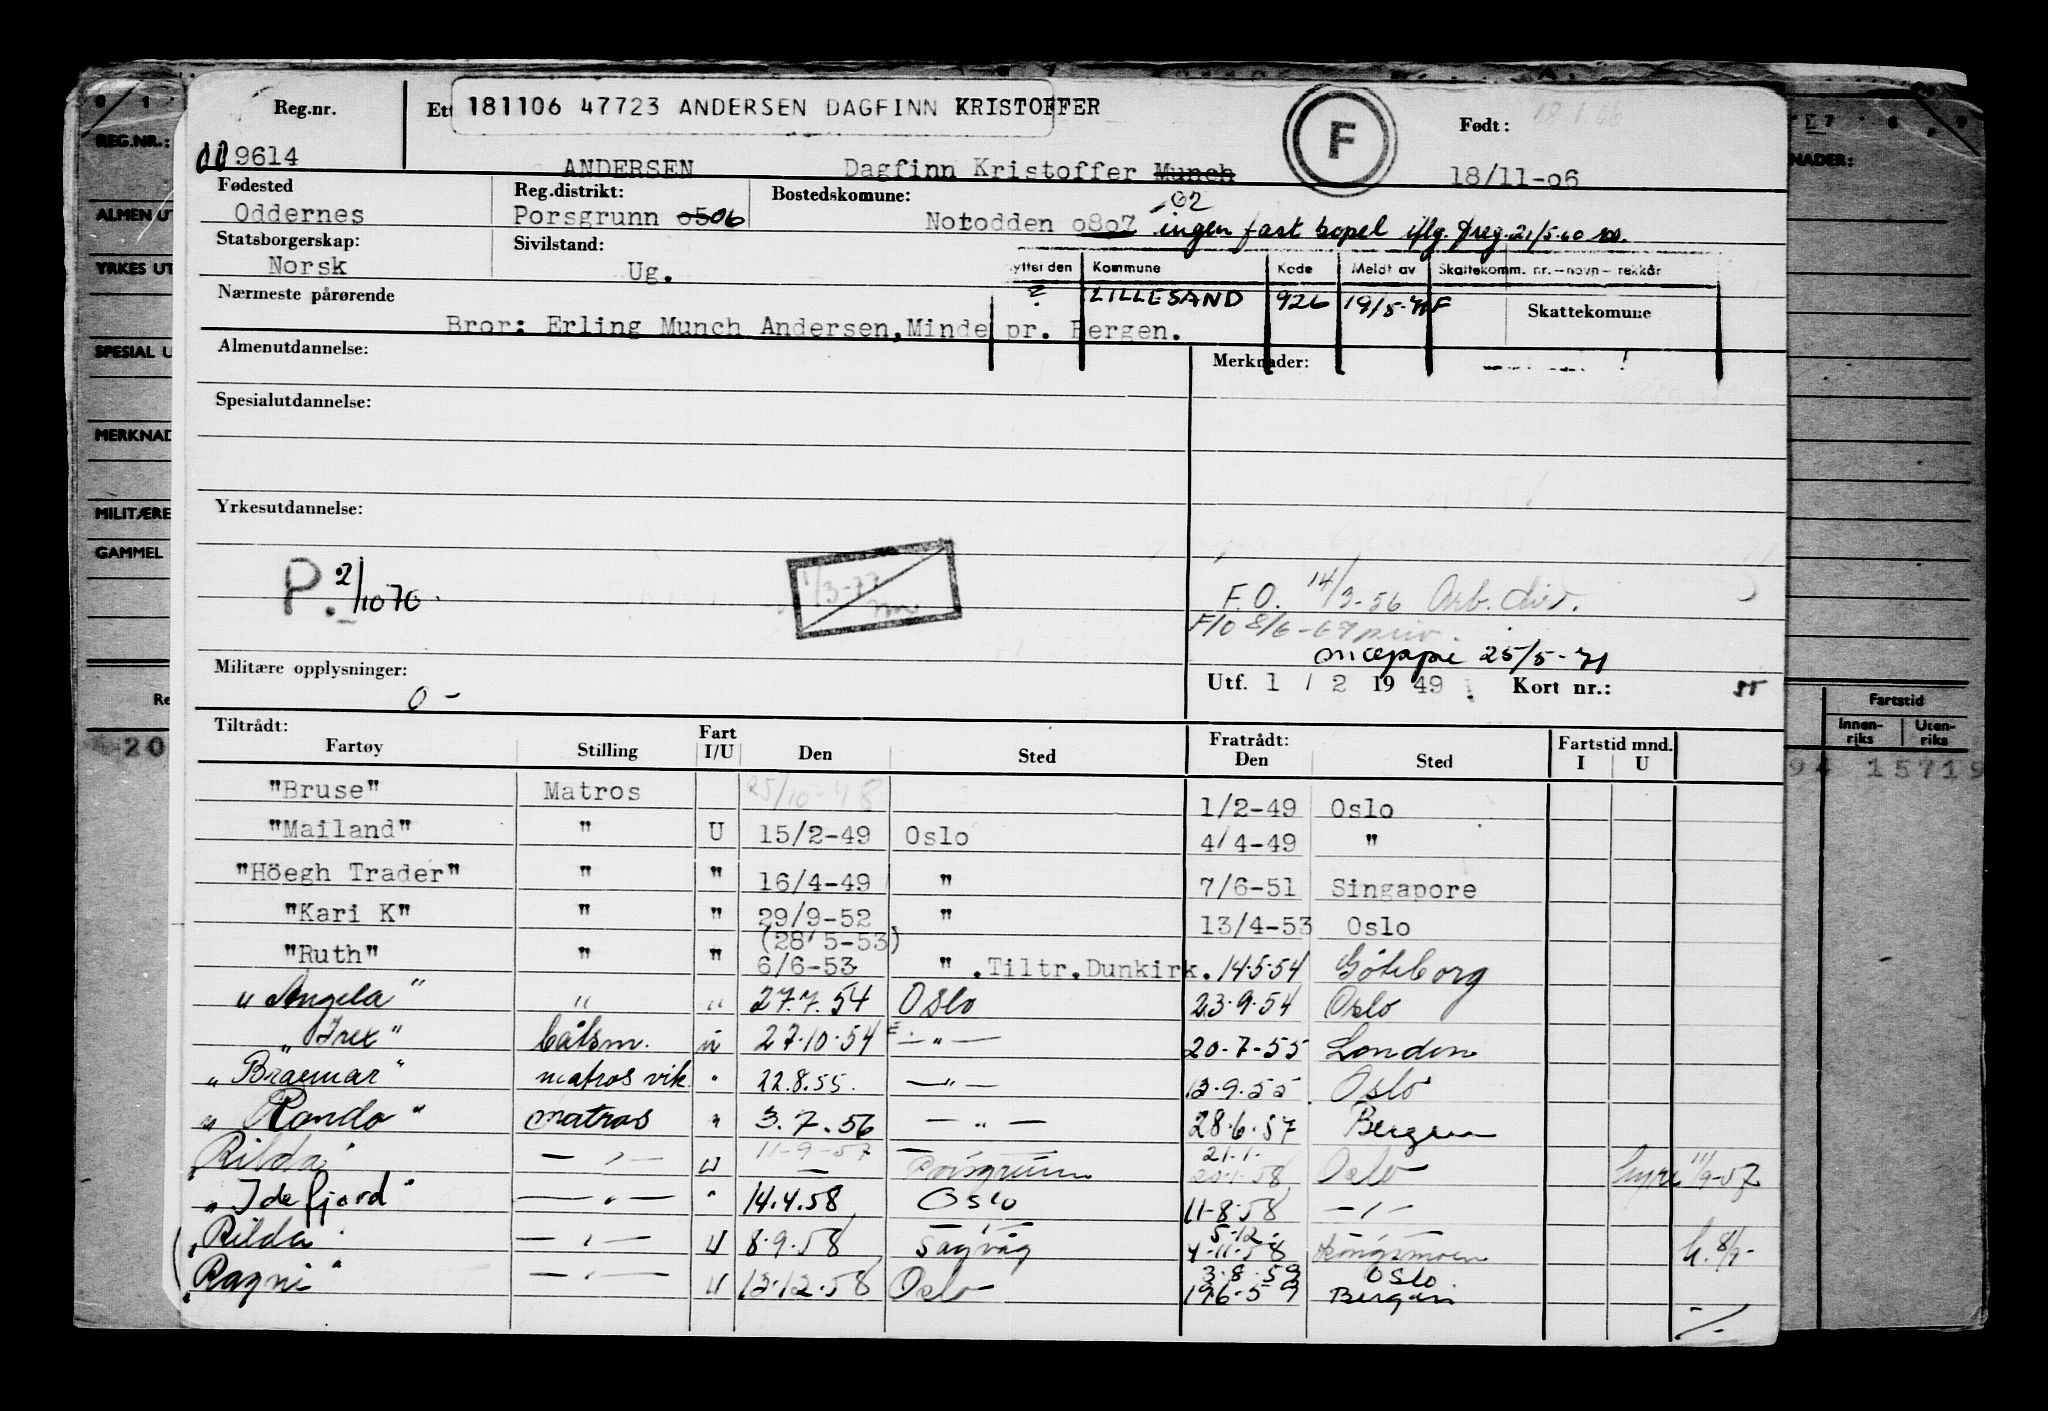 Reg.nr.
181106 47723 ANDERSEN DAGFINN KRISTOFFER
F
Født:
009614
ANDERSEN Dagfinn Kristoffer Munch 18/11-06
Fødested
Oddernes
Reg.distrikt:
Porsgrunn 0506
Bostedskomune:
Notodden 0807 ingen fast bopel iflg. freg. 21/5-60
Statsborgerskap:
Norsk
Sivilstand:
Ug.
Kommune Kode Meldt av Skattekomm. nr.
? LILLESAND 926 19/5-71 F
Nærmeste pårørende
Skattekomune
Bror: Erling Munch Andersen, Minde pr. Bergen.
Almenutdannelse:
Merknader:
Spesialutdannelse:
Yrkesutdannelse:
P. 2/10 70.
1/3-77
F.O. 14/3-56 Arb. dir.
F/O 8/6-67
25/5-71
Militære opplysninger:
0-
Utf. 1 / 2 19 49 Kort nr.:
Tiltrådt:
Fratrådt:
Fartøy Stilling Fart I/U Den Sted Den Sted Fartstid mnd. I U
"Bruse" Matros 25/10-48 1/2-49 Oslo
"Mailand" " U 15/2-49 Oslo 4/4-49 "
"Höegh Trader" " " 16/4-49 " 7/6-51 Singapore
"Kari K" " " 29/9-52 " 13/4-53 Oslo
(28/5-53)
"Ruth" " " 6/6-53 " .Tiltr.Dunkirk. 14.5.54 Göteborg
"Angela" " " 27.7.54 Oslo 23.9.54 Oslo
"Irex" båtsm. " 27.10.54 — " — 20-7-55 London
"Braemar" matros vik. " 22.8.55. — " — 12.9.55 Oslo
"Rondo" matros " 3.7.56 — " — 28.6.57 Bergen
"Rilda" — " — U 11-9-57 Porsgrunn 21.1.58 Oslo 11/9-57
"Idefjord" — " — " 14.4.58 Oslo 11-8-58 — " —
"Rilda" — " — U 8.9.58 Sagvåg 5-12- 4-11-58
"Ragni" — " — U 13.12.58 Oslo 3.8.59 Oslo
19.6-59 Bergen
REG.NR.:
ALMEN UT
YRKES UT
SPESIAL U
MERKNAD
MILITÆRE
GAMMEL
NADER:
Fartstid
Innen-riks Uten-riks
20
94 15719